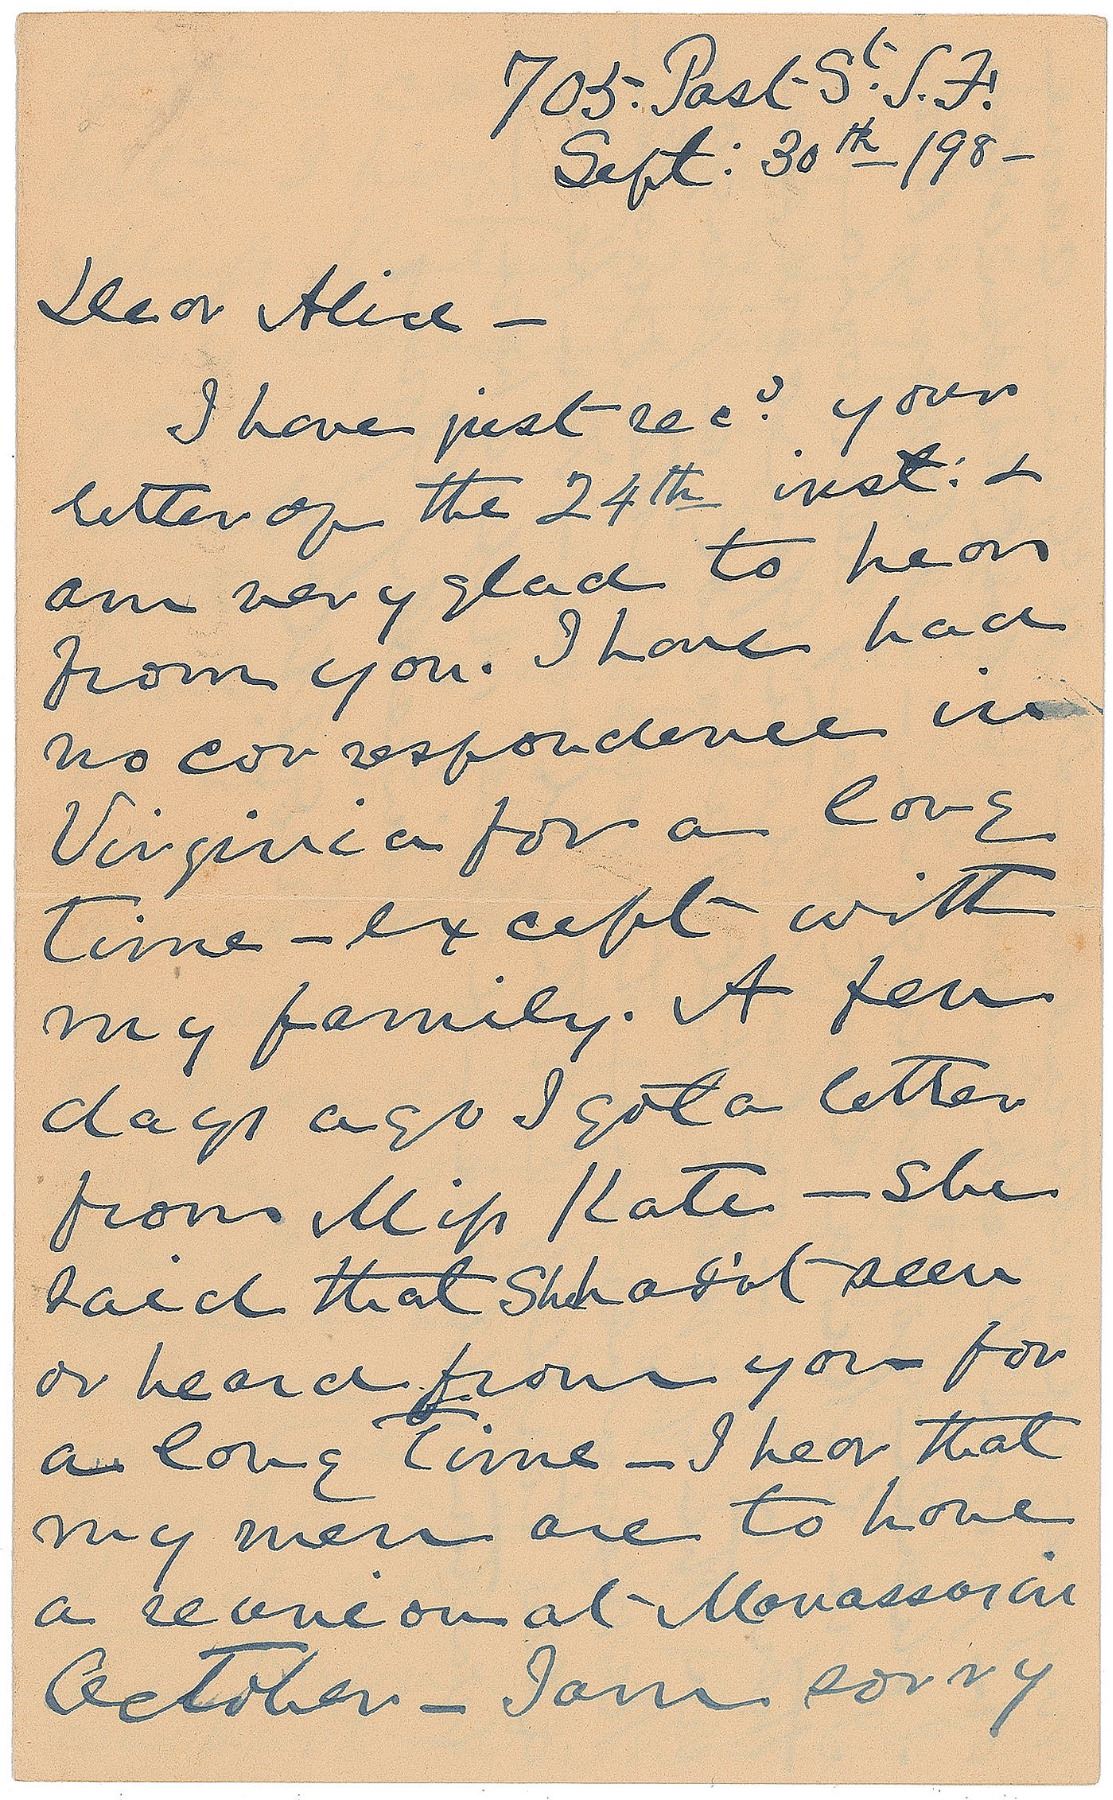 705. Post St. S.F.
Sept: 30th 198-
Dear Alice -
I have just recd your
letter of the 24th inst: &
am very glad to hear
from you. I have had
no correspondence in
Virginia for a long
time - except with
my family. A few
days ago I got a letter
from Miss Kate - she
said that she hadn't seen
or heard from you for
a long time - I hear that
my men are to have
a reunion at Manassas in
October - I am sorry